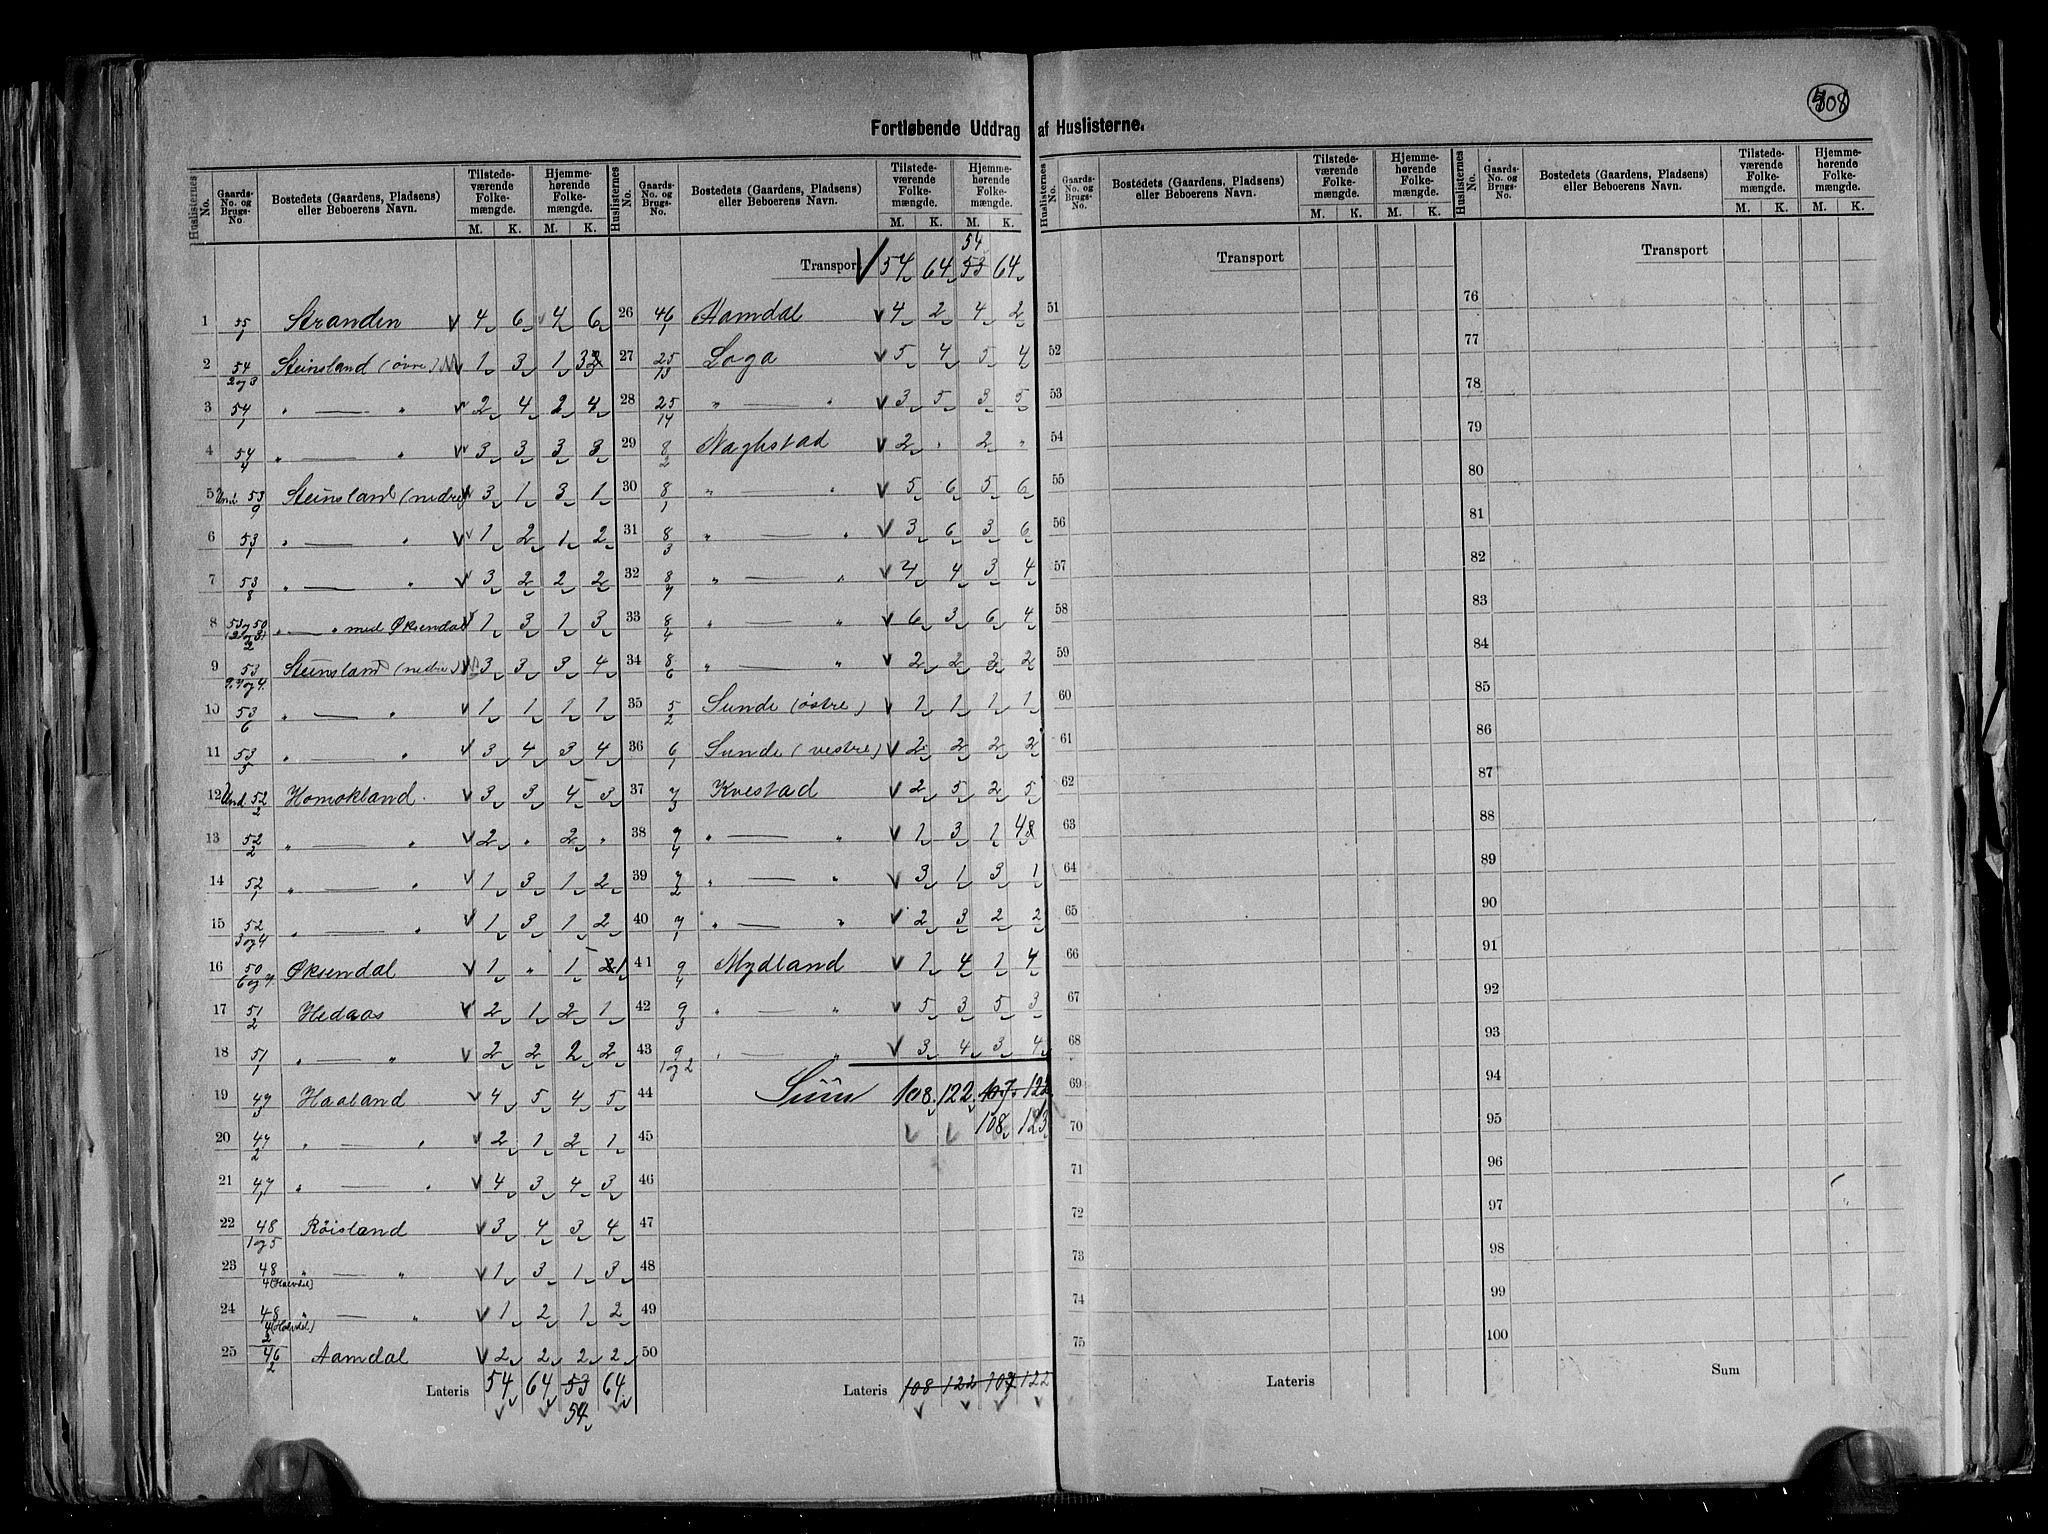 508
Fortløbende Uddrag af Huslisterne.
Huslisternes No. | Gaards-No. og Brugs-No. | Bostedets (Gaardens, Pladsens) eller Beboerens Navn. | Tilstedeværende Folkemængde. M. K. | Hjemmehørende Folkemængde. M. K.
1 55/1 Stranden 4 6 4 6
2 54/2og3 Steinsland (øvre) 1 3 1 3
3 54/1 " — " 2 4 2 4
4 54/4 " — " 3 3 3 3
5 Und. 53/9 Steinsland (nedre) 3 1 3 1
6 53/1 " — " 1 2 1 2
7 53/8 " — " 3 2 2 2
8 53og50 " — " med Øksendal 1 3 1 3
9 53 Steinsland (nedre) 3 3 3 4
10 53/6 " — " 1 1 1 1
11 53/5 " " 3 4 3 4
12 Und. 52/2 Homokland. 3 3 4 3
13 52/2 " — " 2 " 2 "
14 52/1 " — " 1 3 1 2
15 52/3og4 " — " 1 3 1 2
16 50/6og7 Øksendal 1 " 1 1
17 51/2 Hedaas 2 1 2 1
18 51/1 " — " 2 2 2 2
19 47/3 Haaland 4 5 4 5
20 47/2 " — " 2 1 2 1
21 47/1 " — " 4 3 4 3
22 48/1og5 Röisland 3 4 3 4
23 48/4 (Halvdel) " — " 1 3 1 3
24 48/4 (Halvdel) " — " 1 2 1 2
25 46/2 Aamdal 2 2 2 2
Lateris 54 64 53 64
54
54
Transport 54 64 53 64
26 46/1 Aamdal 4 2 4 2
27 25/13 Loga 5 4 5 4
28 25/14 " — " 3 5 3 5
29 8/2 Naghstad 2 " 2 "
30 8/1 " " 5 6 5 6
31 8/3 " — " 3 6 3 6
32 8/7 " — " 4 4 3 4
33 8/4 " — " 6 3 6 4
34 8/6 " — " 2 2 2 2
35 5/2 Sunde (østre) 1 1 1 1
36 6/1 Sunde (vestre) 2 2 2 2
37 7/3 Kvestad 2 5 2 5
38 7/4 " — " 1 3 1 4
39 7/2 " — " 3 1 3 1
40 7/1 " — " 2 3 2 2
41 9/4 Mydland 1 4 1 4
42 9/3 " — " 5 3 5 3
43 9/1og2 " — " 3 4 3 4
44 Sum 108 122 107 122
45 108 123
46
47
48
49
50
Lateris 108 122 107 122
Huslisternes No. | Gaards-No. og Brugs-No. | Bostedets (Gaardens, Pladsens) eller Beboerens Navn. | Tilstedeværende Folkemængde. M. K. | Hjemmehørende Folkemængde. M. K.
Transport
51
52
53
54
55
56
57
58
59
60
61
62
63
64
65
66
67
68
69
70
71
72
73
74
75
Lateris
Transport
76
77
78
79
80
81
82
83
84
85
86
87
88
89
90
91
92
93
94
95
96
97
98
99
100
Sum